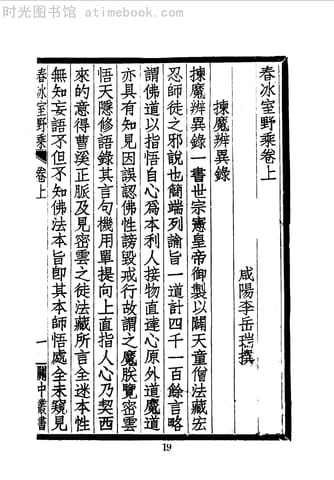 时光图书馆 - atimebook.com
春冰室野乘卷上
咸陽李岳瑞撰
揀魔辨異錄
揀魔辨異錄一書世宗憲皇帝御製以闢天童僧法藏宏
忍師徒之邪說也簡端列諭旨一道計四千一百餘言略
謂佛道以指悟自心爲本利人接物直達心原外道魔道
亦具有知見因誤認佛性謗毀戒行故謂之魔朕覽密雲
悟天隱修語錄其言句機用單提向上直指人心乃契西
來的意得曹溪正脈及見密雲之徒法藏所言全迷本性
無知妄語不但不知佛法本旨卽其本師悟處全未窺見
春冰室野乘
卷上
一
關中叢書
19